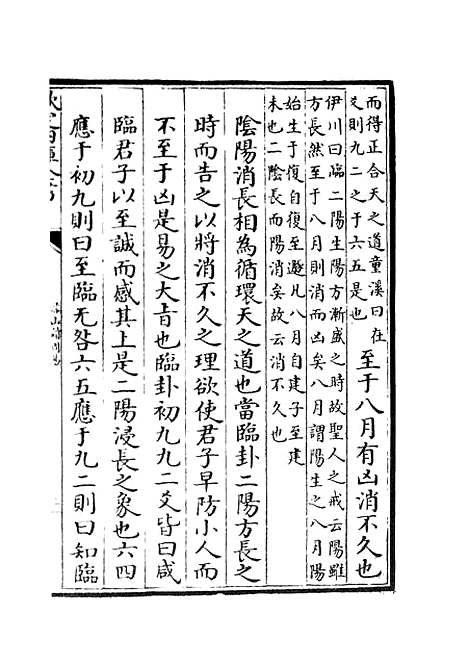 而得正合天之道童溪曰在
爻則九二之于六五是也
至于八月有凶消不久也
伊川曰臨二陽生陽方漸盛之時故聖人之戒云陽雖
方長然至于八月則消而凶矣八月謂陽生之八月陽
始生于復自復至遯凡八月自建子至建
未也二陰長而陽消矣故云消不久也
陰陽消長相為循環天之道也當臨卦二陽方長之
時而告之以將消不久之理欲使君子早防小人而
不至于凶是易之大㫖也臨卦初九九二爻皆曰咸
臨君子以至誠而感其上是二陽浸長之象也六四
應于初九則曰至臨无咎六五應于九二則曰知臨